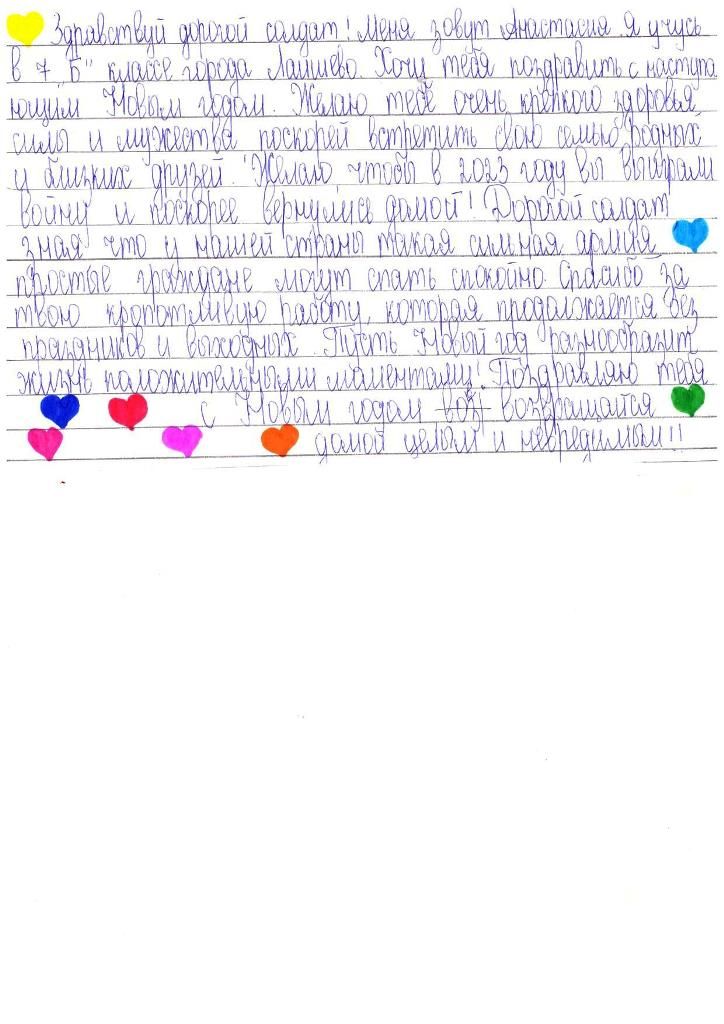 Здравствуй дорогой солдат! Меня зовут Анастасия я учусь
в 7 "Б" классе города Лаишево. Хочу тебя поздравить с наступа
ющим Новым годом. Желаю тебе очень крепкого здоровья
силы и мужества поскорей встретить свою семью родных
и близких друзей. Желаю чтобы в 2023 году вы выйграли
войну и поскорее вернулись домой! Дорогой солдат
зная что у нашей страны такая сильная армия
простые граждане могут спать спокойно. Спасибо за
твою кропотливую работу, которая продолжается без
праздников и выходных. Пусть Новый год разнообразит
жизнь положительными моментами! Поздравляю тебя
с Новым годом возвращайся
домой целым и невредимым!!